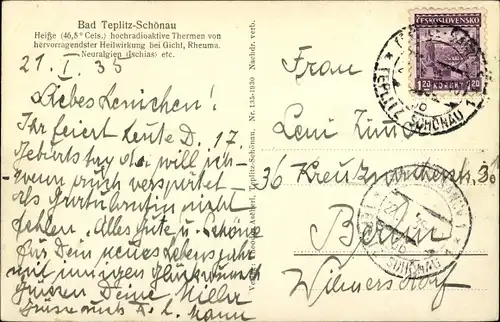 Bad Teplitz-Schönau
Heiße (46,5° Cels.) hochradioaktive Thermen von
hervorragendster Heilwirkung bei Gicht, Rheuma,
Neuralgien (Ischias) etc.
21. I. 35
Liebes Lenichen!
Ihr feiert heute D. 17.
Geburtstag da will ich
wenn auch verspätet
als Gratulantin nicht
fehlen. Alles Gute u. Schöne
für Dein neues Lebensjahr
mit innigen Glückwunsch
Grüssen Deine Milly
Grüsse auch a. l. Mann
Nr. 135-1930 Nachdr. verb.
Teplitz-Schönau.
Frau
Leni
36 Kreuznacherstr. 30
Berlin
Wilmersdorf
ČESKOSLOVENSKO
1.20 KORUNY 1.20
TEPLITZ SCHÖNAU 1